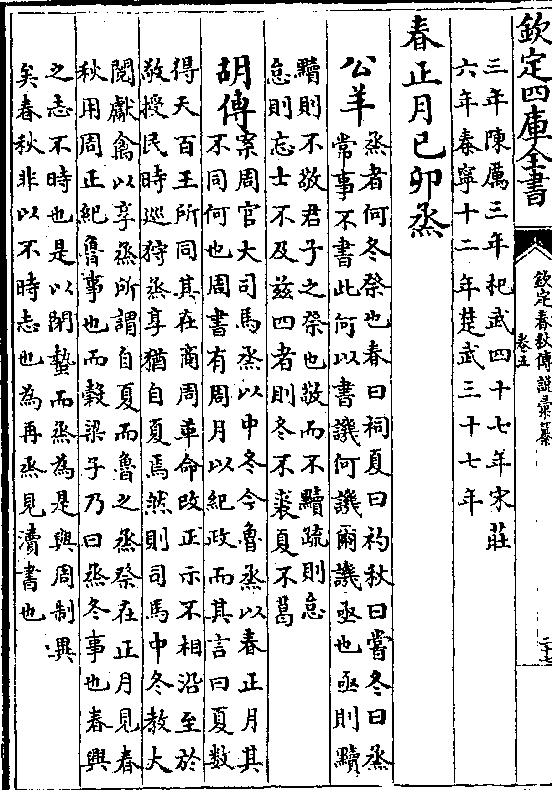 欽定四庫全書
欽定春秋傳說彙纂
卷五
二十七
三年陳厲三年杞武四十七年宋莊
六年秦寧十二年楚武三十七年
春正月己卯烝
公羊
烝者何冬祭也春曰祠夏曰礿秋曰嘗冬曰烝
常事不書此何以書譏何譏爾譏亟也亟則黷
黷則不敬君子之祭也敬而不黷疏則怠
怠則忘士不及茲四者則冬不裘夏不葛
胡傳
案周官大司馬烝以中冬今魯烝以春正月其
不同何也周書有周月以紀政而其言曰夏數
得天百王所同其在商周革命改正示不相沿至於
敬授民時巡狩烝享猶自夏焉然則司馬中冬教大
閱獻禽以享烝所謂自夏而魯之烝祭在正月見春
秋用周正紀魯事也而榖梁子乃曰烝冬事也春興
之志不時也是以閉蟄而烝為是與周制異
矣春秋非以不時志也為再烝見瀆書也